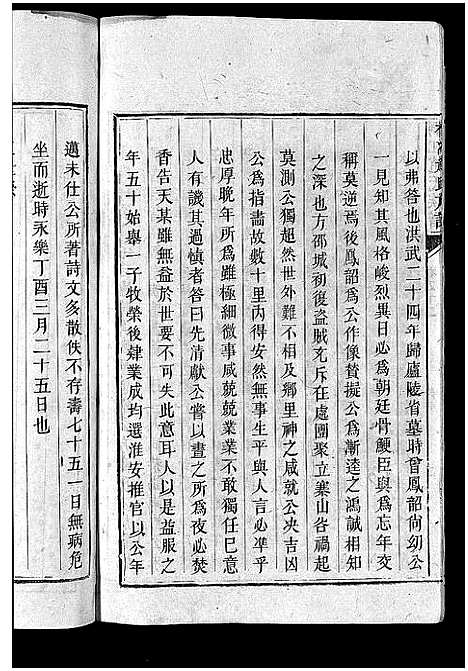 以弗答也洪武二十四年歸廬陵省墓時曾鳳韶尚幼公
見其風格峻烈異日必為朝廷骨鯁臣與為忘年交
稱莫逆焉後鳳韶為公作像贊擬公為漸逵之鴻誠相知
之深也方邵城初復盜賊充斥在處團聚立寨山谷禍起
莫測公獨超然世外難不相及鄉里神之咸就公决吉凶
公為指畫故數十里內得安然無事生平與人言必凖乎
忠厚晚年所為雖極細微事咸兢兢業業不敢獨任巳意
人有譏其過慎者答曰先清獻公嘗以晝之所為夜必焚
香告天某雖無益於世要不可失此意耳人以是益服之
年五十始舉一子牧榮後肄業成均選淮安推官以公年
邁未仕公所著詩文多散佚不存壽七十五一日無病危
坐而逝時永樂丁酉三月二十五日也